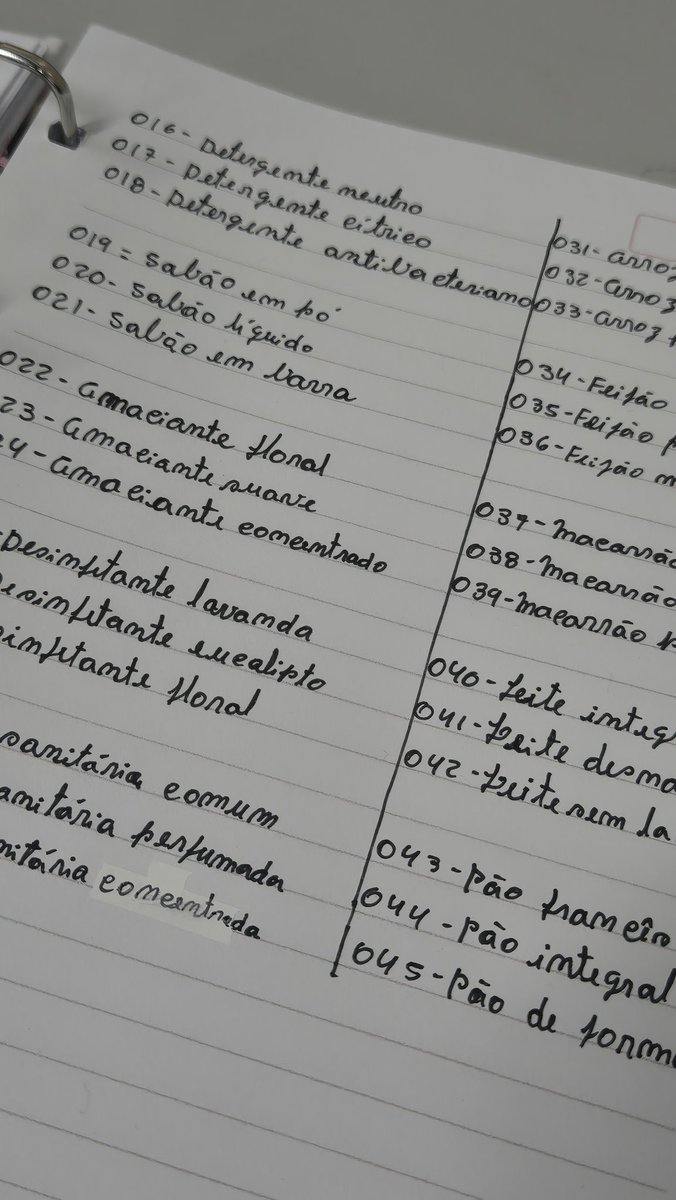 016- Detergente neutro
017- Detergente cítrico
018- Detergente antibacteriano
019= Sabão em pó
020- Sabão líquido
021- Sabão em barra
022- amaciante floral
23- amaciante suave
4- amaciante concentrado
Desinfetante lavanda
esinfetante eucalipto
infetante floral
sanitária comum
anitária perfumada
nitária concentrada
031- arroz
032- arroz
033- arroz
034- Feijão
035- Feijão
036- Feijão m
037- macarrão
038- macarrão
039- macarrão
040- Leite integ
041- Leite desna
042- Leite sem la
043- Pão francês
044- Pão integral
045- Pão de forma